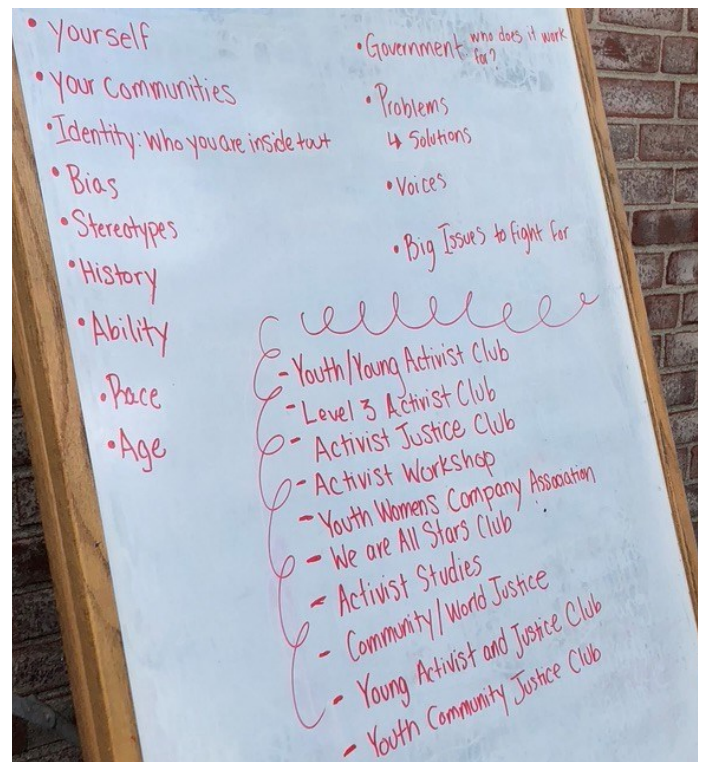 • yourself
• your Communities
• Identity: Who you are inside + out
• Bias
• Stereotypes
• History
• Ability
• Race
• Age
• Government who does it work
for?
• Problems
↳ Solutions
• Voices
• Big Issues to fight for
- Youth/Young Activist Club
- Level 3 Activist Club
- Activist Justice Club
- Activist Workshop
- Youth Womens Company Association
- We are All Stars Club
- Activist Studies
- Community/World Justice
- Young Activist and Justice Club
- Youth Community Justice Club